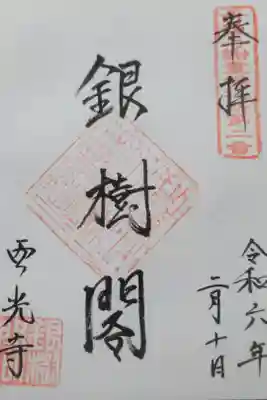 奉拝
銀樹閣
令和六年
二月十日
西光寺